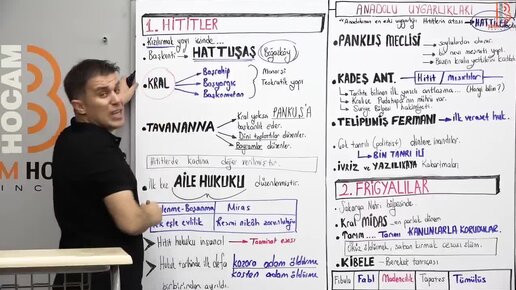 HOCAM
B
HO
INC
1. HİTİTLER
Kızılırmak yayı içinde...
Başkenti HATTUŞAŞ (Boğazköy)
KRAL
Başrahip
Başyargıç
Başkomutan
Monarşi
Teokratik yapı
TAVANANNA
Kral yoksa PANKUŞ'A
başkanlık eder.
Dini toplantılar düzenler.
Bayramlar düzenler.
Hititlerde kadına değer verilmiştir.
ilk kez AİLE HUKUKU düzenlenmiştir.
lenme-Boşanma
Miras
Tek eşle evlilik
Resmi nikâh zorunluluğu
Hitit hukuku insancıl Tazminat esası
Hukuk tarihinde ilk defa kazara adam öldürme
kasten adam öldürme
birbirinden ayrıldı.
ANADOLU UYGARLIKLARI
Anadolunun en eski uygarlığı Hititlerin atası HATTİLER
PANKUŞ MECLİSİ
soylulardan oluşur.
bir nevi meşruti yapı
Bazen kralın yetkilerini kısıtladı
KADEŞ ANT. Hitit / Mısırlılar
Tarihte bilinen ilk yazılı antlaşma... (Hangi bilim?)
Kraliçe Puduhepa'nın mührü var.
Suriye Bölgesi hakimiyeti.
TELİPUNİŞ FERMANI ilk veraset huk.
Çok tanrılı (politeist) dinlere inandılar.
BİN TANRI İLİ
İVRİZ ve YAZILIKAYA Kabartmaları
2. FRİGYALILAR
Sakarya Nehri bölgesinde.
Kral MİDAS en parlak dönem
Tarım... Tarımı KANUNLARLA KORUDULAR.
Öküz öldürmek, saban kırmak cezası ölüm.
KİBELE Bereket tanrıçası
Fibula Fabl Madencilik Tapates Tümülüs